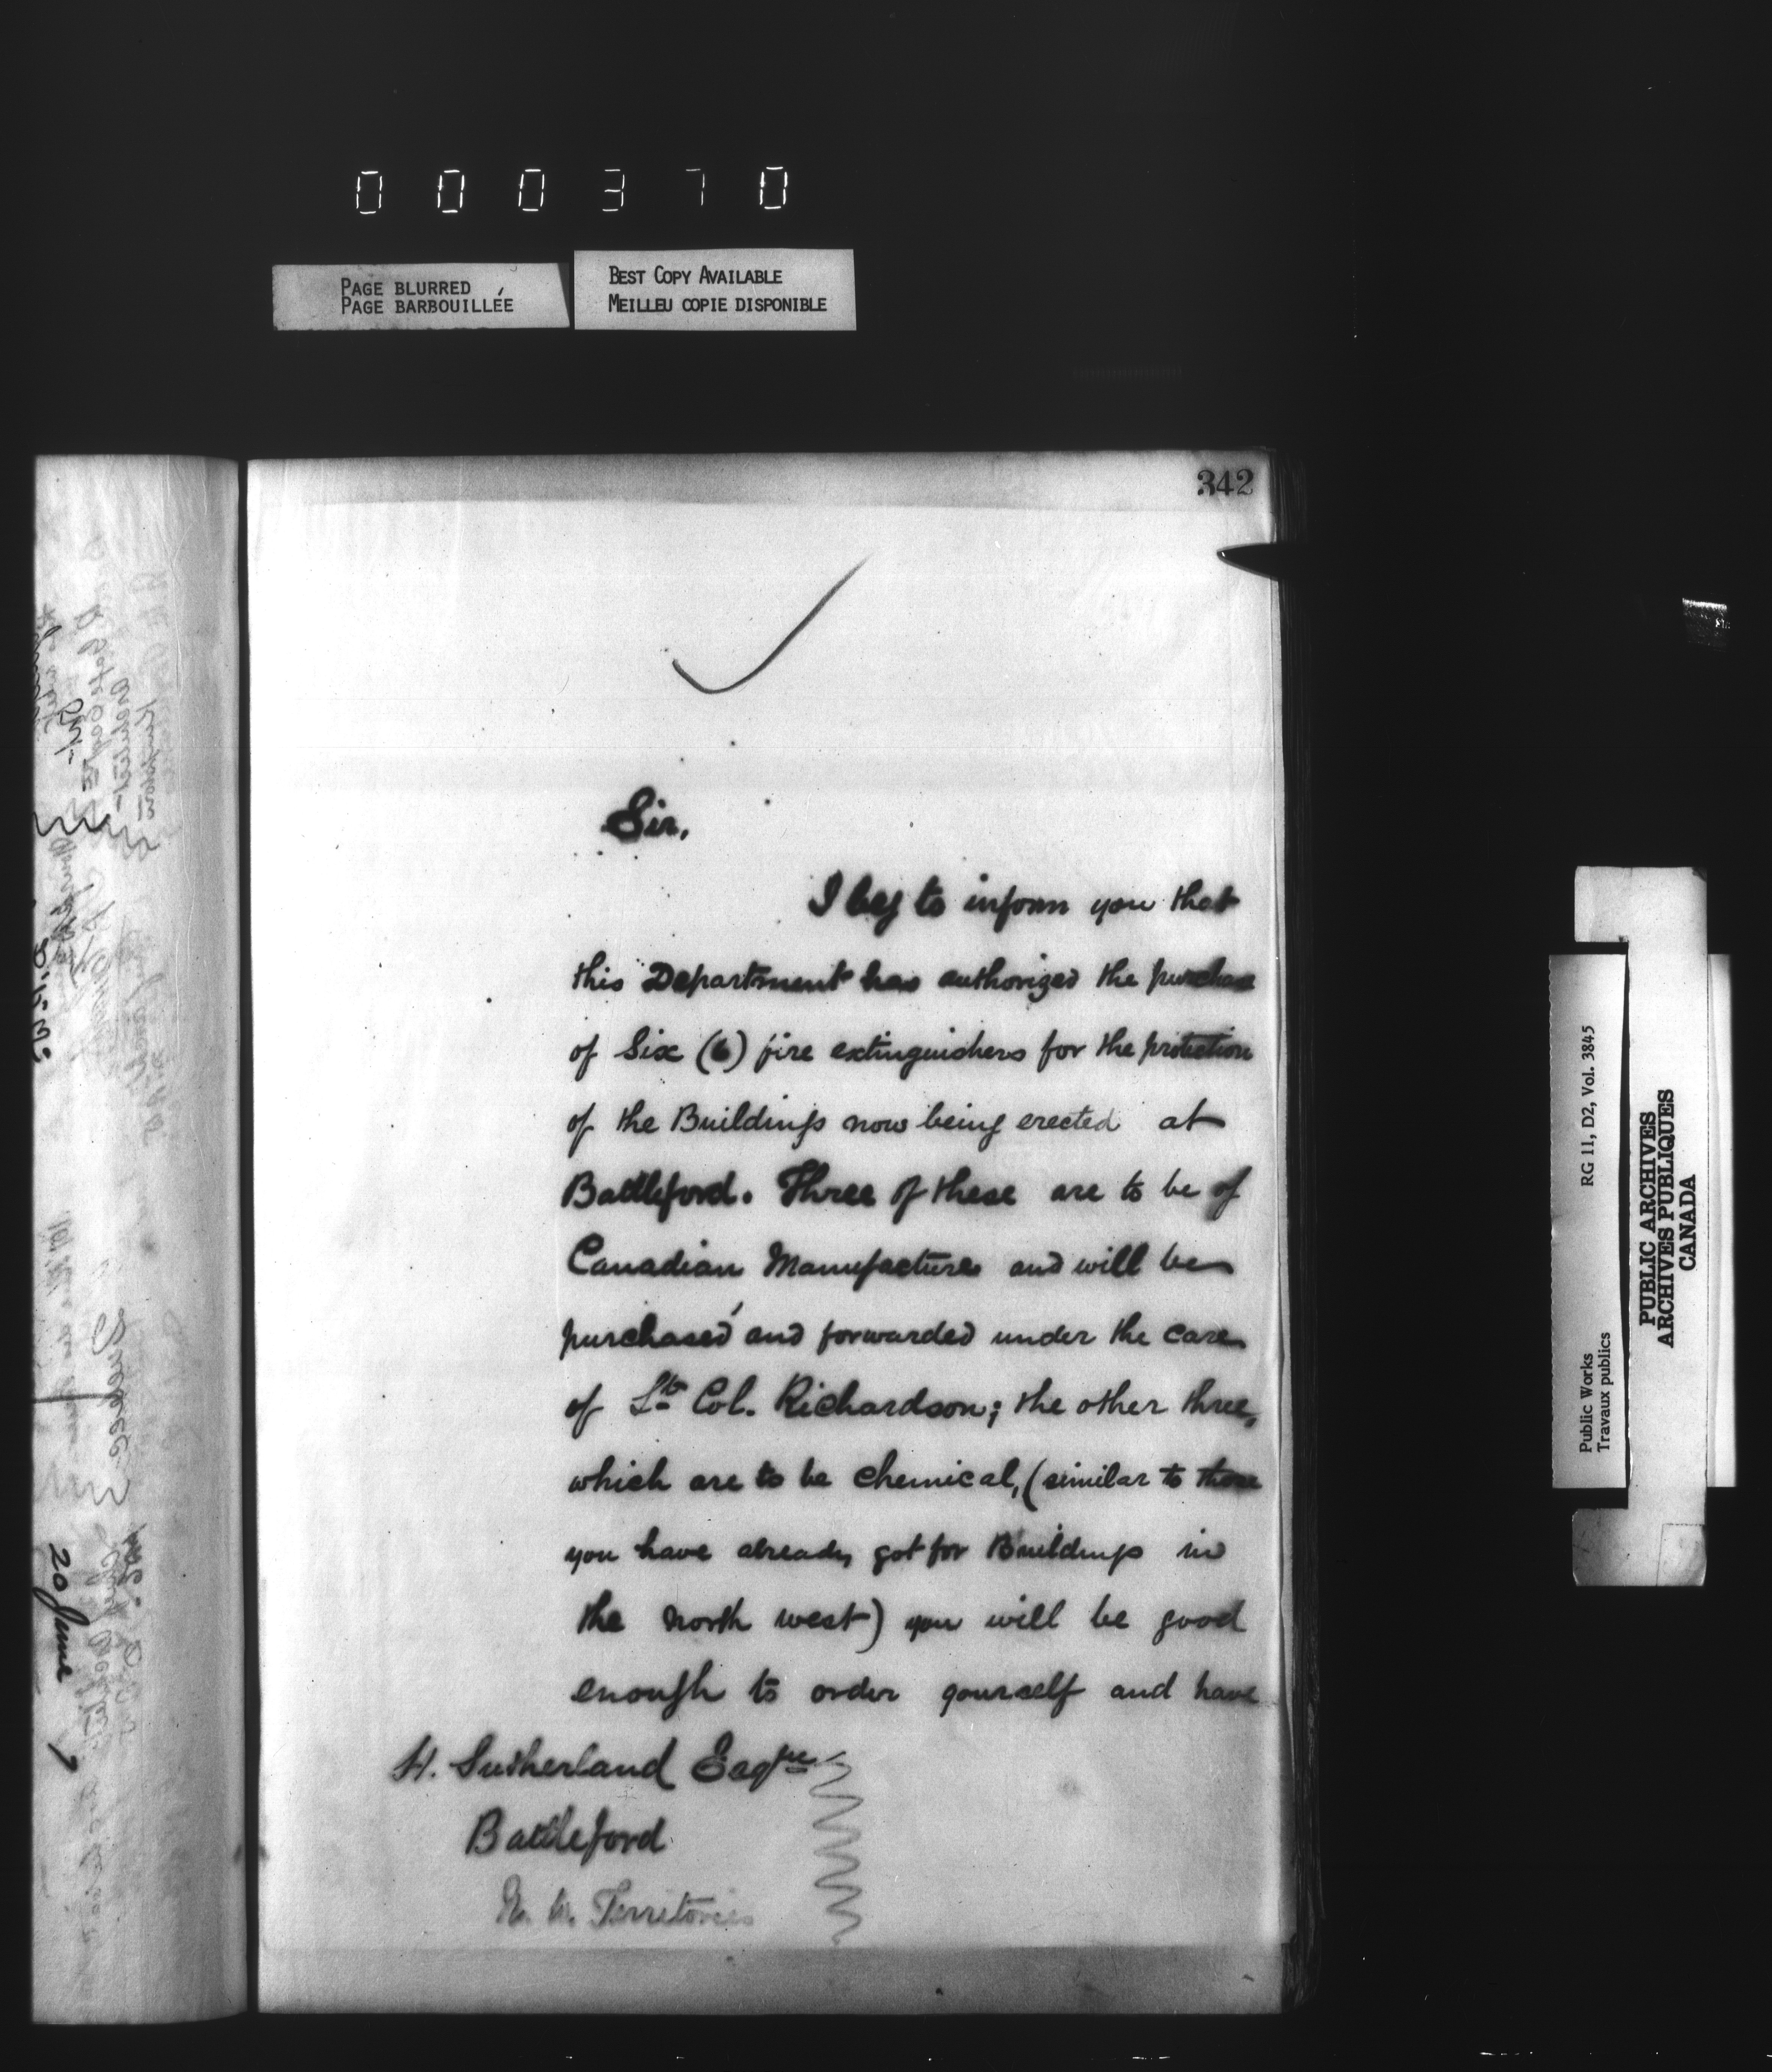 000370
PAGE BLURRED
PAGE BARBOUILLÉE
BEST COPY AVAILABLE
MEILLEU COPIE DISPONIBLE
342
Sir,
I beg to inform you that
this Department has authorized the purchase
of Six (6) fire extinguishers for the protection
of the Buildings now being erected at
Battleford. Three of these are to be of
Canadian Manufacture and will be
purchased and forwarded under the care
of Lt. Col. Richardson; the other three,
which are to be Chemical, (similar to those
you have already got for Buildings in
the north west) you will be good
enough to order yourself and have
H. Sutherland Esqre
Battleford
N. W. Territories
20 June
Public Works
Travaux publics
RG 11, D2, Vol. 3845
PUBLIC ARCHIVES
ARCHIVES PUBLIQUES
CANADA